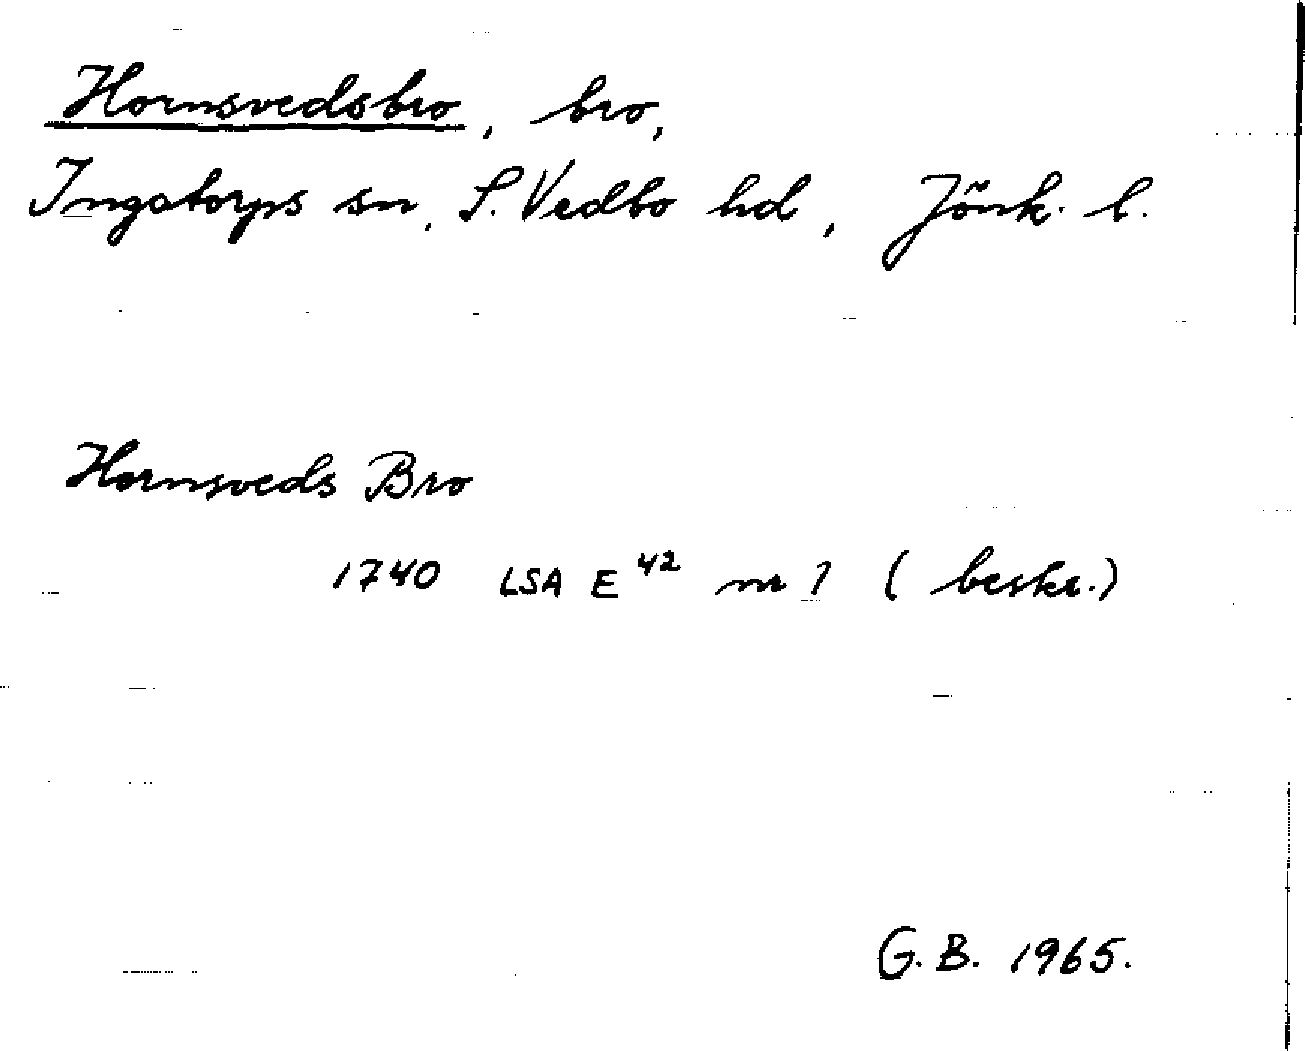 Hornsvedsbro, bro,
Ingatorps sn, S. Vedbo hd, Jönk. l.
Hornsveds Bro
1740 LSA E 42 nr 1 (beskr.)
G. B. 1965.